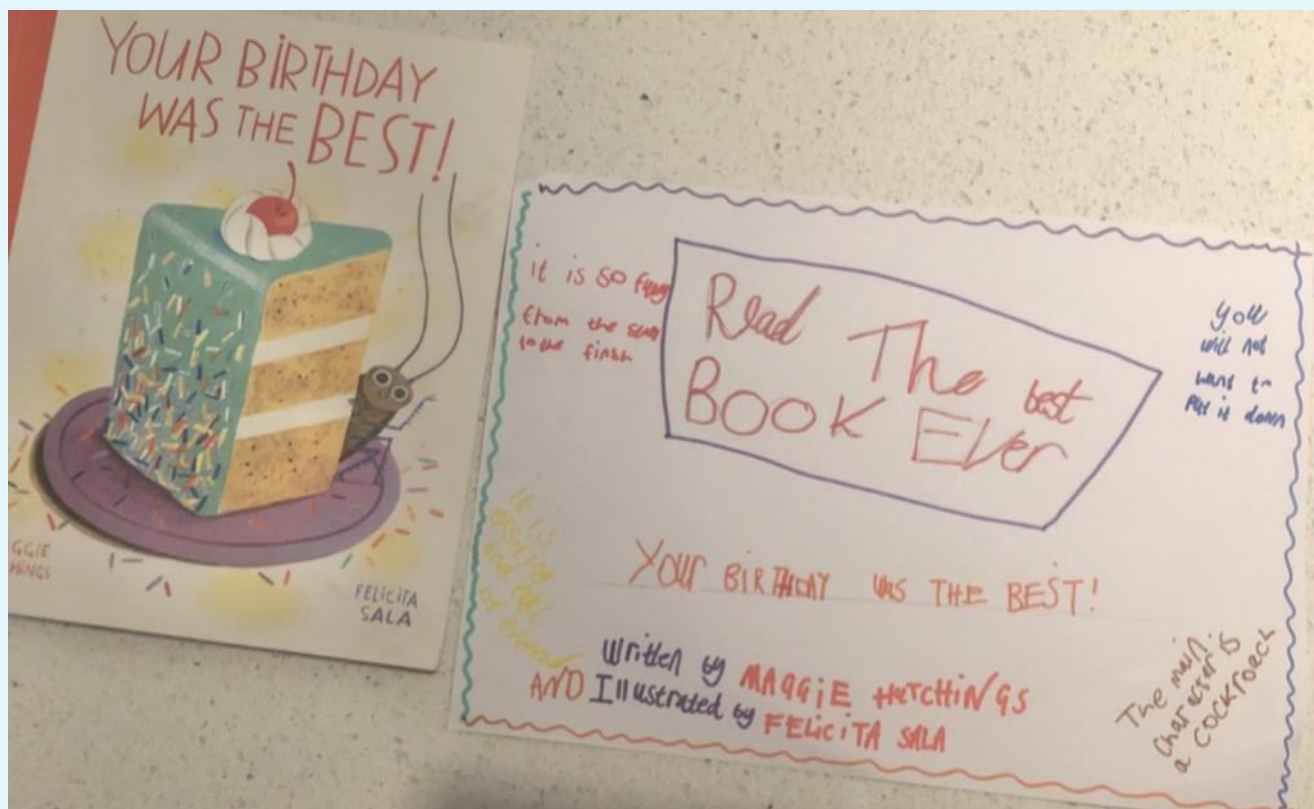 YOUR BIRTHDAY
WAS THE BEST!
GGIE
HINGS
FELICITA
SALA
it is so funy
from the
to the finsh
Read The best
BOOK EVer
you
will not
want to
Put it down
YOUR BIRTHDAY WAS THE BEST!
It is
and
of
Written by MAGGIE HUTCHINGS
AND Illustrated by FELICITA SALA
The main
character is
a COCKROACH